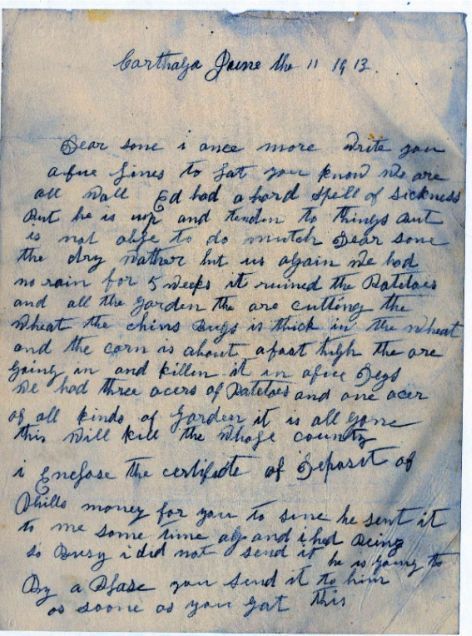 Carthage June the 11 1913
Dear sone i once more write you
a fue lines to lat you know we are
all wall Ed had a hard spell of sickness
But he is up and tenden to things But
is not able to do mutch Dear sone
the dry wather hit us again we had
no rain for 5 weeks it ruined the Patetoes
and all the garden the are cutting the
wheat the chins Bugs is thick in the wheat
and the corn is about a foot high the are
going in and killen it in a fue Days
we had three acers of Patetoes and one acer
of all kinds of garden it is all gone
this will kill the whole county
i Enclose the certifcate of Deposit of
Phills money for you to sine he sent it
to me some time ago and i hed Being
so Busy i did not send it he is going to
By a Plase you send it to him
as soone as you gat this